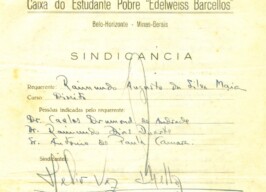 Caixa do Estudante Pobre "Edelweiss Barcellos"
Belo-Horizonte - Minas-Gerais
SINDICANCIA
Requerente: Raimundo Augusto da Silva Maia
Curso: Direito
Pessoas indicadas pelo requerente
Dr. Carlos Drumond de Andrade
Dr. Raimundo Dias Duarte
Sr. Antonio de Paula Camara
Sindicante:
Helio Vaz